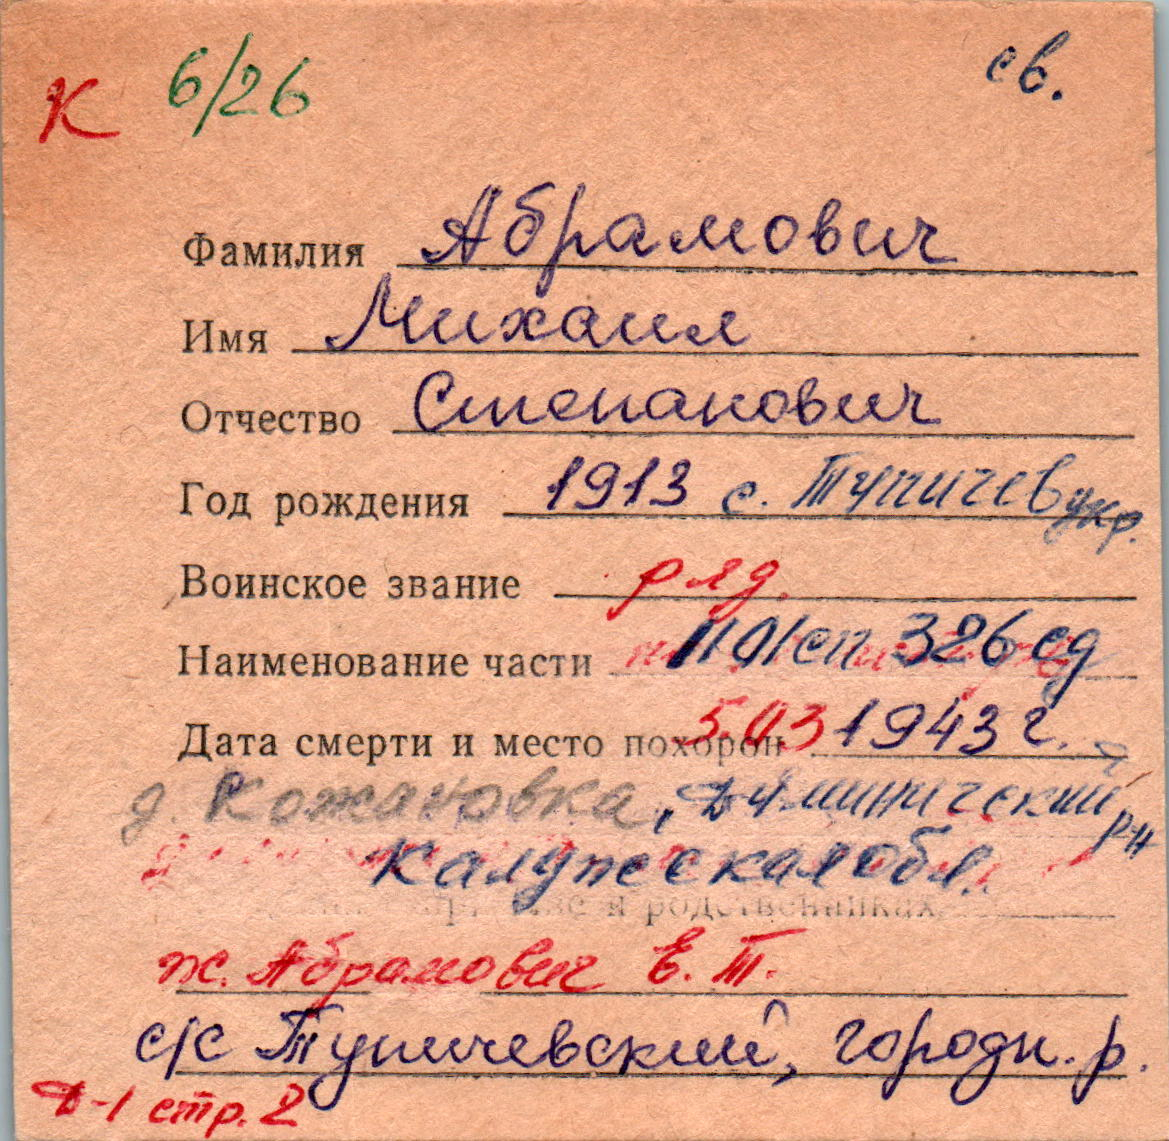 св.
К 6/26
Фамилия Абрамович
Имя Михаил
Отчество Степанович
Год рождения 1913 с. Тупичев укр.
Воинское звание ряд.
Наименование части 1101 сп 326 сд
Дата смерти и место похорон 5.03 1943 г.
д. Кожановка, Думиничский р-н
Калужская обл.
и родственниках
ж. Абрамович Е. Т.
с/с Тупичевский, городн. р.
Д-1 стр. 2